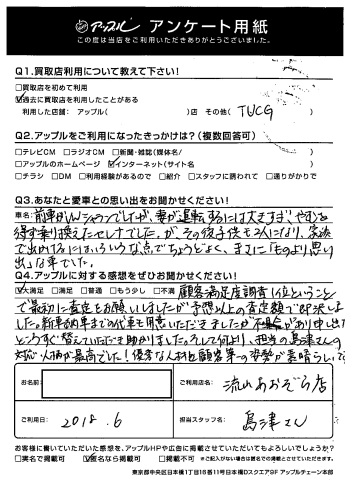 アップル アンケート用紙
この度は当店をご利用いただきありがとうございました。
Q1.買取店利用について教えて下さい!
□買取店を初めて利用
☑過去に買取店を利用したことがある
利用した店舗: アップル( )店 その他( TUCG )
Q2.アップルをご利用になったきっかけは?(複数回答可)
□テレビCM □ラジオCM □新聞・雑誌(媒体名/ )
□アップルのホームページ ☑インターネット(サイト名 )
□チラシ □DM □利用経験があるので □紹介 □スタッフに誘われて □通りがかりで
Q3.あなたと愛車との思い出をお聞かせください!
車名: 前車がバンジャンボでしたが、妻が運転するには大きすぎ、やむを
得ず乗り換えたセレナでした。が、その後子供も3人になり、家族
で出かけるにはいろいろな点でちょうどよく、まさに「ものより思い
出」な車でした。
Q4.アップルに対する感想をぜひお聞かせください!
☑大満足 □満足 □普通 □もう少し □不満 顧客満足度調査1位ということ
で最初に査定をお願いしましたが予想以上の査定額で即決しま
した。新車納車までの代車も用意いただきましたが不具合があり申し出た
ところすぐ替えていただき助かりました。そして何より、担当の島津さんの
対応・人柄が最高でした!優秀な人材と顧客第一の姿勢が素晴らしいです
お名前
ご利用店名 流山あおぞら店
ご利用日 2018.6
担当スタッフ名 島津さん
お客様に書いていただいた感想を、アップルHPや広告に掲載させていただいてもよろしいでしょうか?
□実名で掲載可 ☑匿名なら掲載可 □掲載不可 ※ご記入がない場合は匿名での掲載とさせていただきます。
東京都中央区日本橋1丁目16番11号日本橋Dスクエア9F アップルチェーン本部